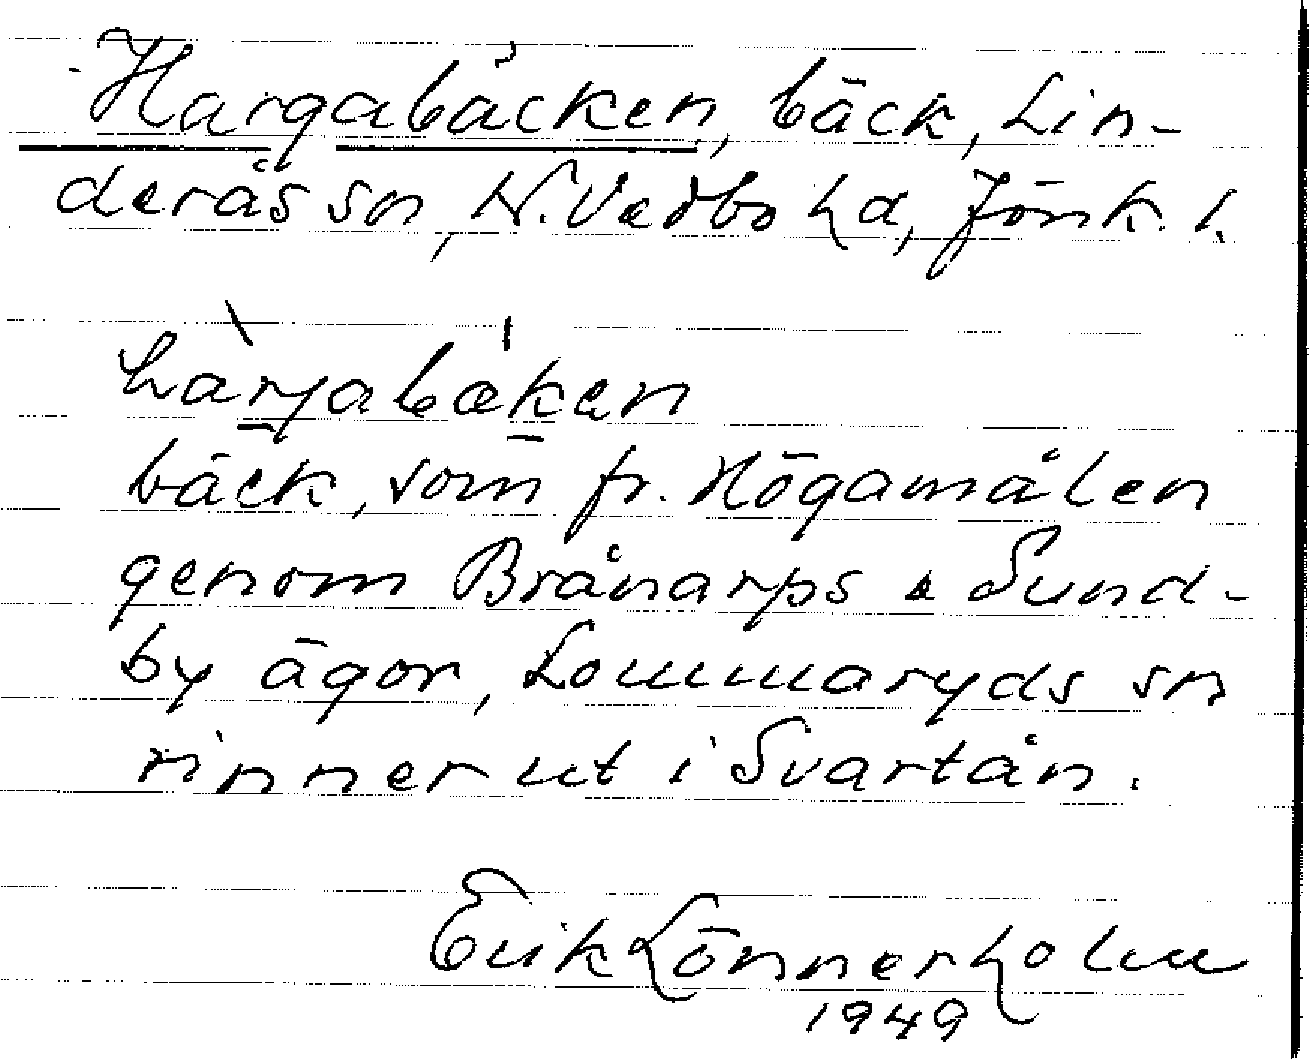 Hargabäcken, bäck, Lin-
derås sn, N. Vedbo hd, Jönk. l.
hàrjabækan
bäck, som fr. Högamålen
genom Brånarps o Sund-
by ägor, Lommaryds sn
rinner ut i Svartån.
Erik Lönnerholm
1949